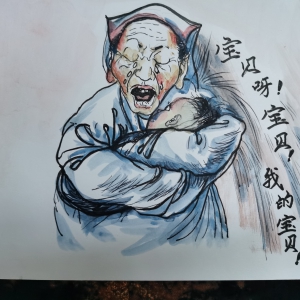 宝贝呀！宝贝！我的宝贝！